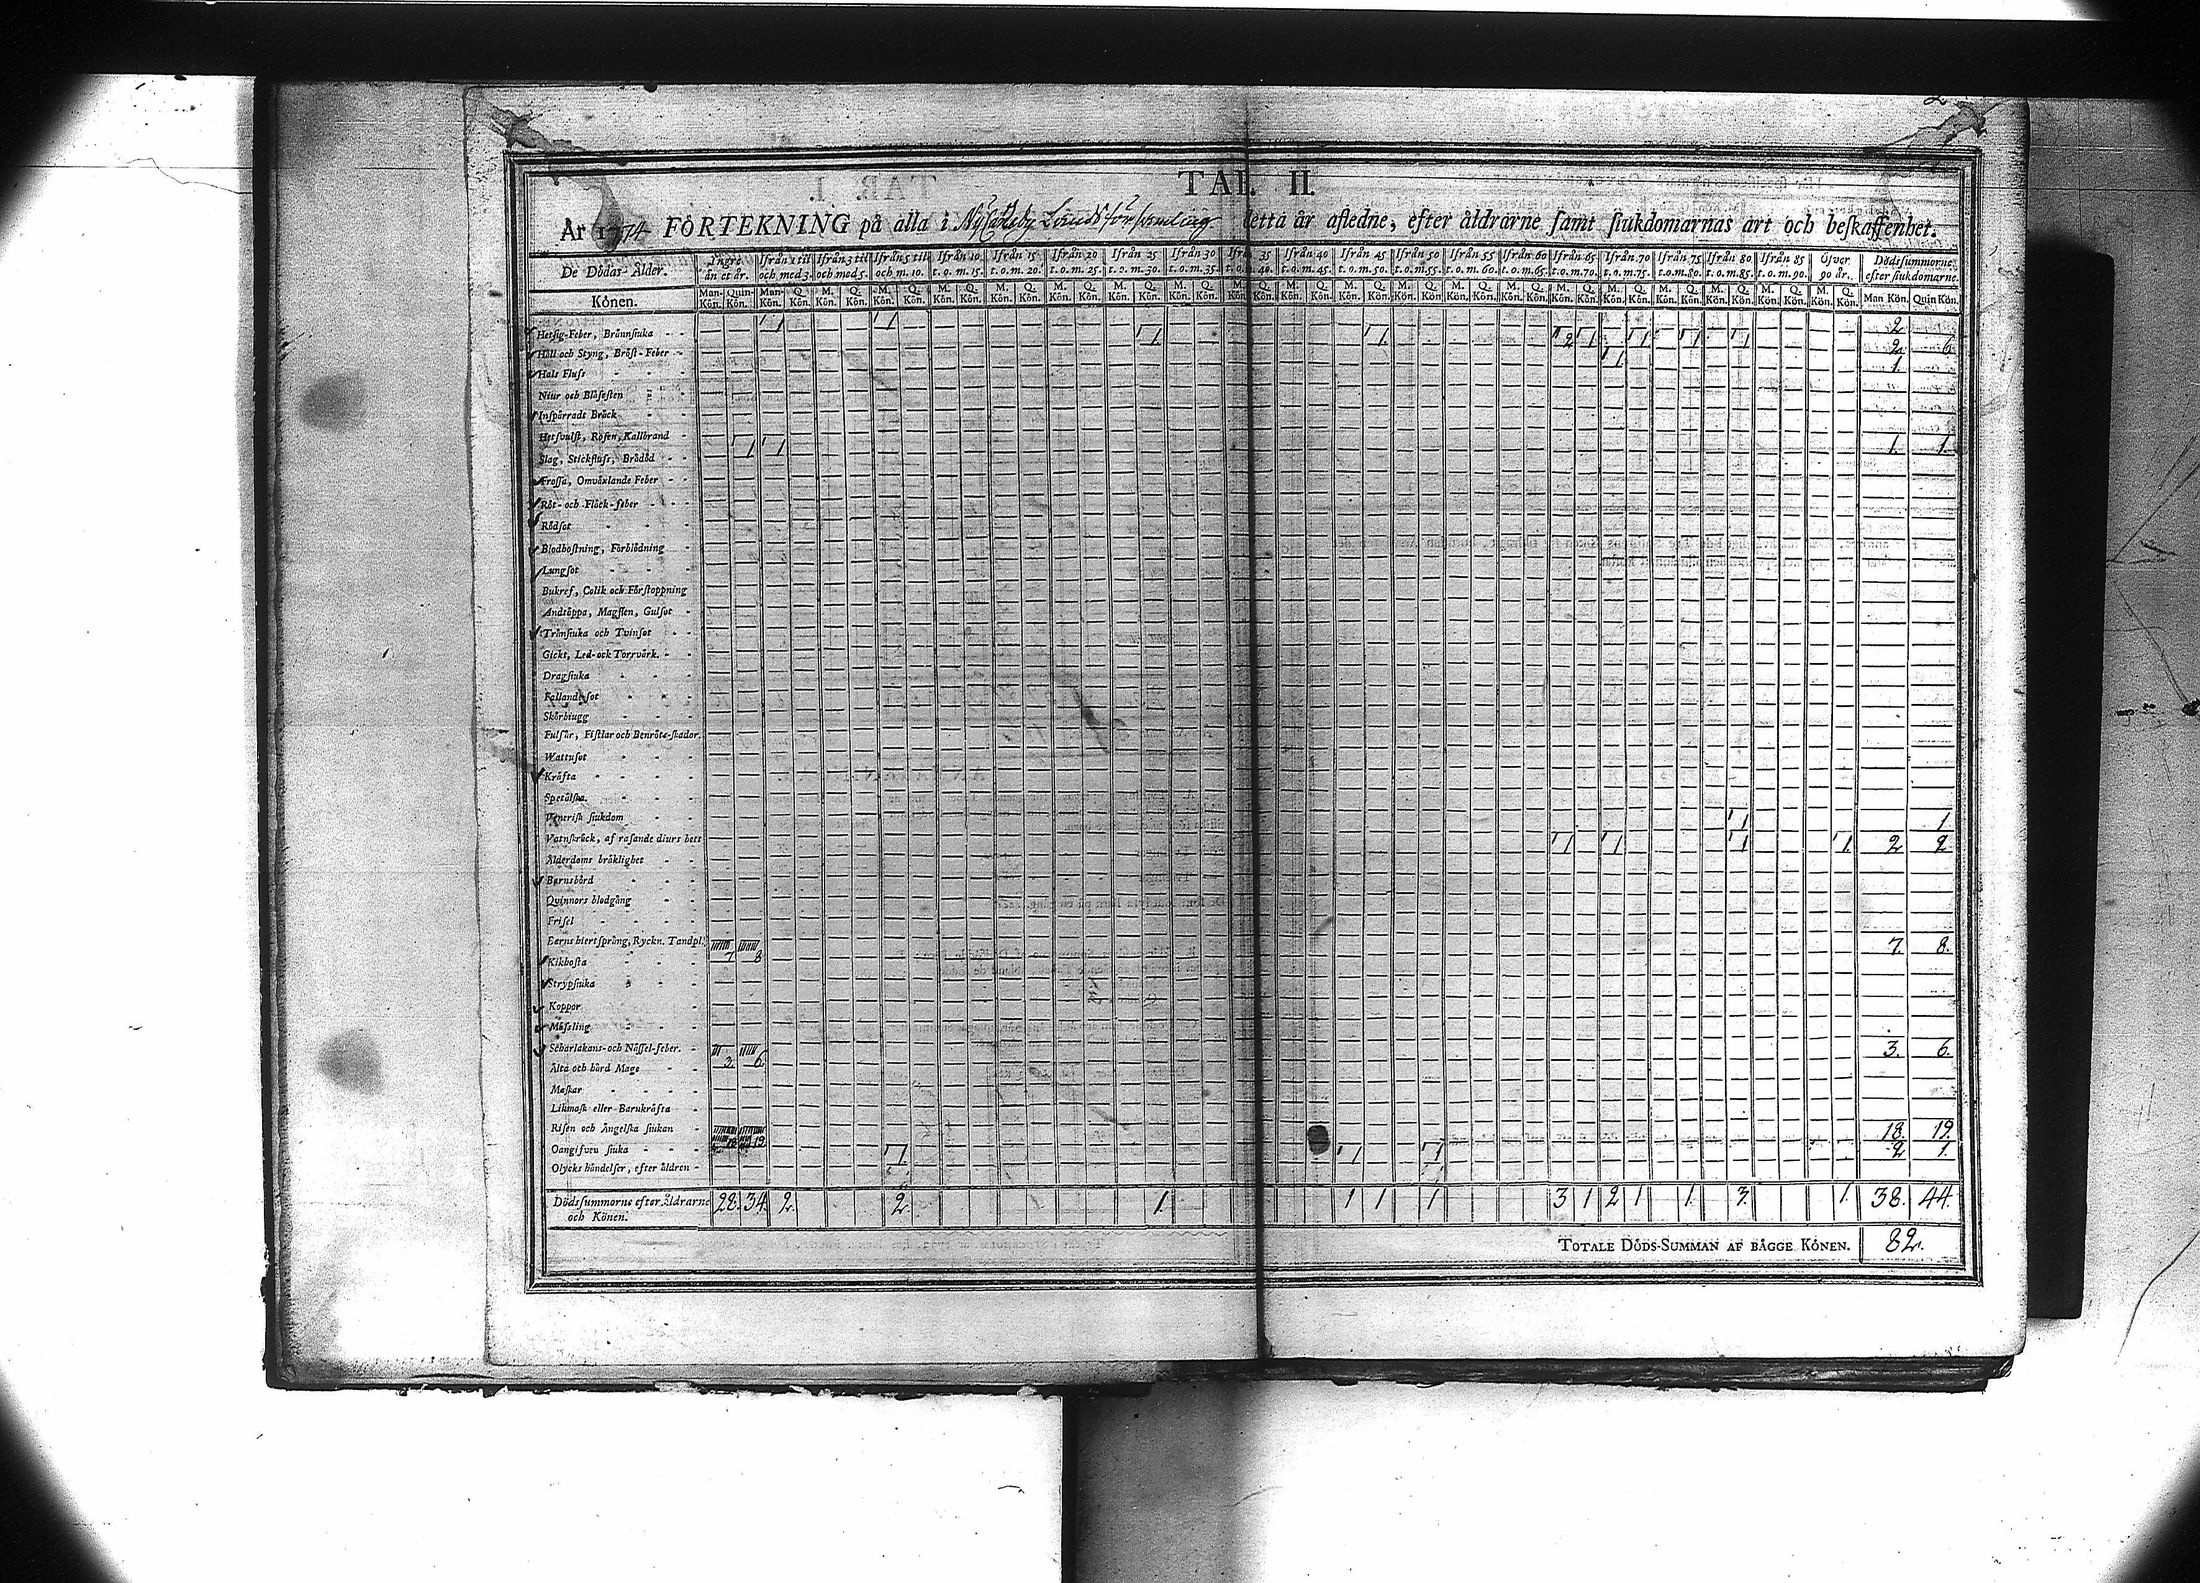 TAB. II.
År 1774 FÖRTEKNING på alla i NyCarleby Landsförsamling detta år afledne, efter åldrarne samt siukdomarnas art och beskaffenhet.
De Dödas Ålder. Ingre än et år. Ifrån 1 til och med 3. Ifrån 3 til och med 5. Ifrån 5 til och m. 10. Ifrån 10 t. o. m. 15. Ifrån 15 t. o. m. 20. Ifrån 20 t. o. m. 25. Ifrån 25 t. o. m. 30. Ifrån 30 t. o. m. 35. Ifrån 35 t. o. m. 40. Ifrån 40 t. o. m. 45. Ifrån 45 t. o. m. 50. Ifrån 50 t. o. m. 55. Ifrån 55 t. o. m. 60. Ifrån 60 t. o. m. 65. Ifrån 65 t. o. m. 70. Ifrån 70 t. o. m. 75. Ifrån 75 t. o. m. 80. Ifrån 80 t. o. m. 85. Ifrån 85 t. o. m. 90. Öfver 90 år. Dödssummorne efter siukdomarne.
Könen. Man-Kön. Quin-Kön. Man-Kön. Q. Kön. M. Kön. Q. Kön. M. Kön. Q. Kön. M. Kön. Q. Kön. M. Kön. Q. Kön. M. Kön. Q. Kön. M. Kön. Q. Kön. M. Kön. Q. Kön. M. Kön. Q. Kön. M. Kön. Q. Kön. M. Kön. Q. Kön. M. Kön. Q. Kön. M. Kön. Q. Kön. M. Kön. Q. Kön. M. Kön. Q. Kön. M. Kön. Q. Kön. M. Kön. Q. Kön. M. Kön. Q. Kön. M. Kön. Q. Kön. M. Kön. Q. Kön. Man Kön. Quin Kön.
Hetsig-Feber, Brännsiuka - - 1 1 2
Håll och Styng, Bröst-Feber - 1 1 2 1 1 1 1 2 6
Hals Fluss - - - 1 1
Niur och Blåsesten
Inspärradt Bråck
Hetsvulst, Rosen, Kallbrand
Slag, Stickfluss, Brådöd - - 1 1 1. 1.
Frossa, Omväxlande Feber - -
Röt- och Fläck-feber - - -
Rödsot
Blodhostning, Förblödning
Lungsot
Bukref, Colik och Förstoppning
Andtäppa, Magsten, Gulsot
Trånsiuka och Tvinsot
Gickt, Led- och Torrvärk.
Dragsiuka
Fallandesot
Skörbiugg
Fulsår, Fistlar och Benröte-skador.
Wattusot
Kräfta
Spetälska.
Venerisk siukdom
Vatnskräck, af rasande diurs bett 1 1
Ålderdoms bräklighet 1 1 1 1 2 2
Barnsbörd
Qvinnors blodgång
Frisel
Barns hiertsprång, Ryckn. Tandpl. 7 8 7. 8.
Kikhosta
Strypsiuka
Koppor
Mässling
Scharlakans- och Nässel-feber. 3 6 3. 6.
Älta och hård Mage
Maskar
Likmask eller Barnkräfta
Risen och Ängelska siukan 18 19 18. 19.
Oangifven siuka - - - 1 1 1 2 1.
Olycks händelser, efter äldren -
Dödssummorne efter Åldrarne och Könen. 28. 34. 2. 2. 1. 1 1 1 3 1 2 1 1. 3. 1. 38. 44.
TOTALE DÖDS-SUMMAN AF BÅGGE KÖNEN. 82.